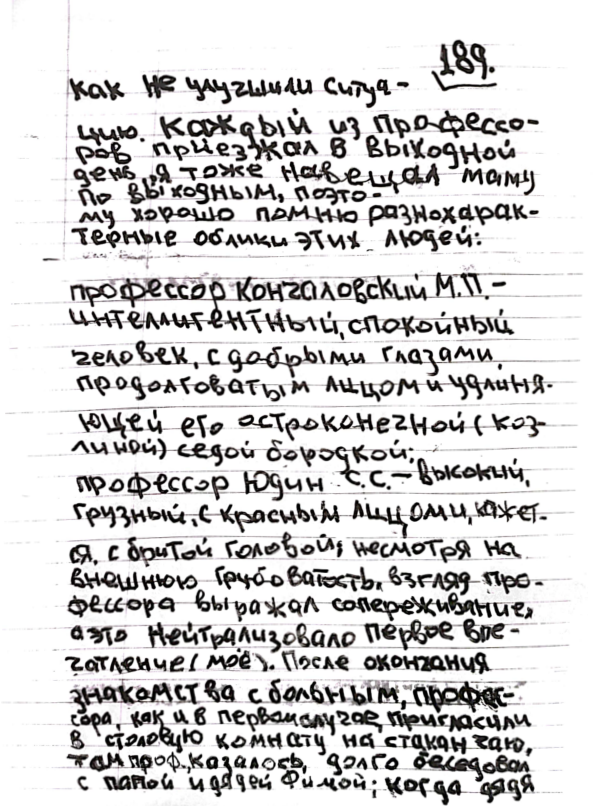 189.
как не улучшили ситуа-
цию. Каждый из профессо-
ров приезжал в выходной
день, я тоже навещал маму
по выходным, поэто-
му хорошо помню разнохарак-
терные облики этих людей:
профессор Кончаловский М.П.-
интеллигентный, спокойный
человек, с добрыми глазами,
продолговатым лицом и удлиня-
ющей его остроконечной (коз-
линой) седой бородкой;
профессор Юдин С.С.-высокий,
грузный, с красным лицом и, кажет-
ся, с бритой головой; несмотря на
внешнюю грубоватость, взгляд про-
фессора выражал сопереживание,
а это нейтрализовало первое впе-
чатление (моё). После окончания
знакомства с больным, профес-
сора, как и в первом случае, пригласили
в столовую комнату на стакан чаю,
там проф., казалось, долго беседовал
с папой и дядей Фимой; когда дядя